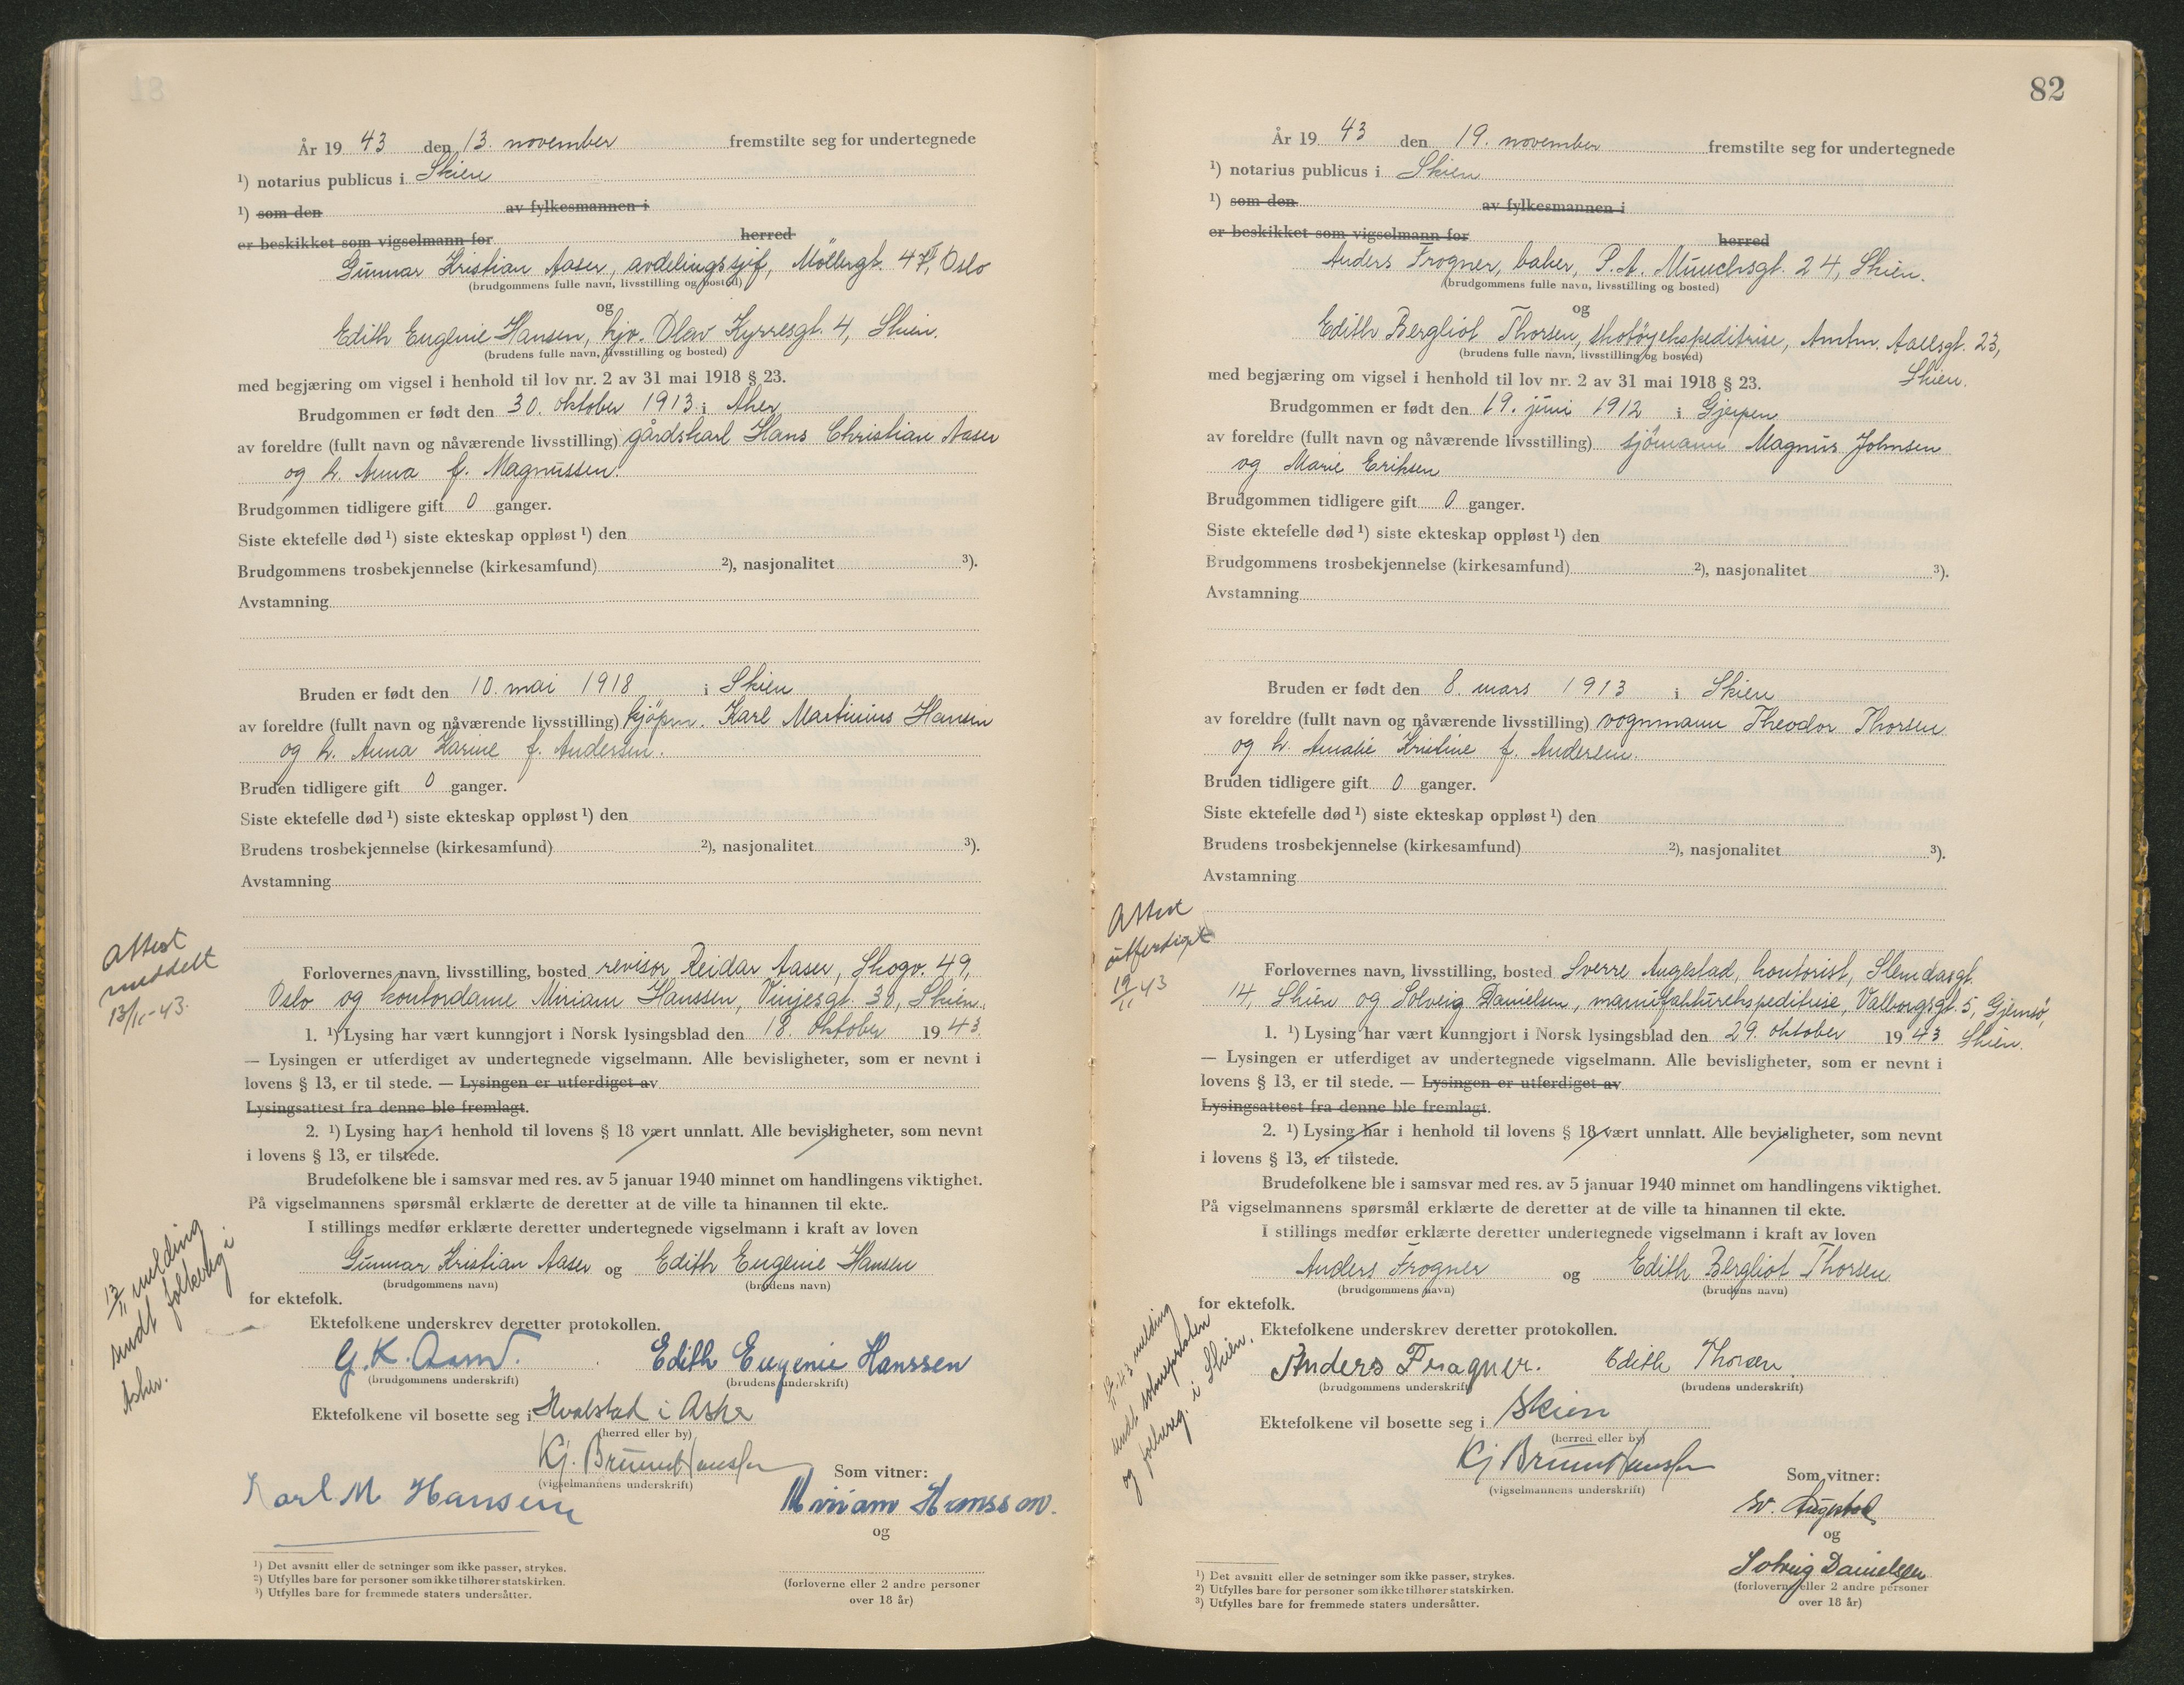 År 19 43 den 13. november fremstilte seg for undertegnede
¹) notarius publicus i Skien
¹) som den av fylkesmannen i
er beskikket som vigselmann for herred
Gunnar Kristian Aaser, avdelingssjef, Möllergt. 47, Oslo
(brudgommens fulle navn, livsstilling og bosted)
og
Edith Eugenie Hansen, hjv. Olav Kyrresgt. 4, Skien.
(brudens fulle navn, livsstilling og bosted)
med begjæring om vigsel i henhold til lov nr. 2 av 31 mai 1918 § 23.
Brudgommen er født den 30. oktober 1913 i Aker
av foreldre (fullt navn og nåværende livsstilling) gårdskarl Hans Christian Aaser
og h. Anna f. Magnussen.
Brudgommen tidligere gift 0 ganger.
Siste ektefelle død ¹) siste ekteskap oppløst ¹) den
Brudgommens trosbekjennelse (kirkesamfund) ²), nasjonalitet ³).
Avstamning
Bruden er født den 10. mai 1918 i Skien
av foreldre (fullt navn og nåværende livsstilling) kjöpm. Karl Martinius Hansen
og h. Anna Karine f. Andersen.
Bruden tidligere gift 0 ganger.
Siste ektefelle død ¹) siste ekteskap oppløst ¹) den
Brudens trosbekjennelse (kirkesamfund) ²), nasjonalitet ³).
Avstamning
Attest
meddelt
13/11-43.
Forlovernes navn, livsstilling, bosted revisor Reidar Aaser, Skogv. 49,
Oslo og kontordame Miriam Hanssen, Vinjesgt. 30, Skien.
1. ¹) Lysing har vært kunngjort i Norsk lysingsblad den 18. oktober 19 43
— Lysingen er utferdiget av undertegnede vigselmann. Alle bevisligheter, som er nevnt i
lovens § 13, er til stede. — Lysingen er utferdiget av
Lysingsattest fra denne ble fremlagt.
2. ¹) Lysing har i henhold til lovens § 18 vært unnlatt. Alle bevisligheter, som nevnt
i lovens § 13, er tilstede.
Brudefolkene ble i samsvar med res. av 5 januar 1940 minnet om handlingens viktighet.
På vigselmannens spørsmål erklærte de deretter at de ville ta hinannen til ekte.
I stillings medfør erklærte deretter undertegnede vigselmann i kraft av loven
Gunnar Kristian Aaser og Edith Eugenie Hansen
(brudgommens navn) (brudens navn)
for ektefolk.
13/11 melding
sendt folkereg i
Asker.
Ektefolkene underskrev deretter protokollen.
G. K. Aaser. Edith Eugenie Hanssen
(brudgommens underskrift) (brudens underskrift)
Ektefolkene vil bosette seg i Hvalstad i Asker
(herred eller by)
Kj. Bruun Hanssen
(vigselmannens underskrift) Som vitner:
Karl M Hansen Miriam Hanssen.
og
¹) Det avsnitt eller de setninger som ikke passer, strykes.
²) Utfylles bare for personer som ikke tilhører statskirken.
³) Utfylles bare for fremmede staters undersåtter.
(forloverne eller 2 andre personer
over 18 år)
82
År 19 43 den 19. november fremstilte seg for undertegnede
¹) notarius publicus i Skien
¹) som den av fylkesmannen i
er beskikket som vigselmann for herred
Anders Frogner, baker, P. A. Munchsgt. 24, Skien.
(brudgommens fulle navn, livsstilling og bosted)
og
Edith Bergliot Thorsen, skotöyekspeditrise, Amtm. Aallsgt. 23,
Skien.
(brudens fulle navn, livsstilling og bosted)
med begjæring om vigsel i henhold til lov nr. 2 av 31 mai 1918 § 23.
Brudgommen er født den 19. juni 1912 i Gjerpen
av foreldre (fullt navn og nåværende livsstilling) sjömann Magnus Johnsen
og Marie Eriksen
Brudgommen tidligere gift 0 ganger.
Siste ektefelle død ¹) siste ekteskap oppløst ¹) den
Brudgommens trosbekjennelse (kirkesamfund) ²), nasjonalitet ³).
Avstamning
Bruden er født den 8. mars 1913 i Skien
av foreldre (fullt navn og nåværende livsstilling) vognmann Theodor Thorsen
og h. Amalie Kristine f. Andersen.
Bruden tidligere gift 0 ganger.
Siste ektefelle død ¹) siste ekteskap oppløst ¹) den
Brudens trosbekjennelse (kirkesamfund) ²), nasjonalitet ³).
Avstamning
Attest
utferdiget
19/11 43
Forlovernes navn, livsstilling, bosted Sverre Augestad, kontorist, Slemdasgt.
14, Skien og Solveig Danielsen, manufakturekspeditrise, Valborgsgt. 5, Gjemsö,
Skien.
1. ¹) Lysing har vært kunngjort i Norsk lysingsblad den 29. oktober 19 43
— Lysingen er utferdiget av undertegnede vigselmann. Alle bevisligheter, som er nevnt i
lovens § 13, er til stede. — Lysingen er utferdiget av
Lysingsattest fra denne ble fremlagt.
2. ¹) Lysing har i henhold til lovens § 18 vært unnlatt. Alle bevisligheter, som nevnt
i lovens § 13, er tilstede.
Brudefolkene ble i samsvar med res. av 5 januar 1940 minnet om handlingens viktighet.
På vigselmannens spørsmål erklærte de deretter at de ville ta hinannen til ekte.
I stillings medfør erklærte deretter undertegnede vigselmann i kraft av loven
Anders Frogner og Edith Bergliot Thorsen
(brudgommens navn) (brudens navn)
for ektefolk.
melding
sendt soknepresten
og folkereg. i Skien.
Ektefolkene underskrev deretter protokollen.
Anders Frogner. Edith Thorsen
(brudgommens underskrift) (brudens underskrift)
Ektefolkene vil bosette seg i Skien
(herred eller by)
Kj Bruun Hanssen
(vigselmannens underskrift) Som vitner:
Sv. Augestad
og
Solveig Danielsen
(forloverne eller 2 andre personer
over 18 år)
¹) Det avsnitt eller de setninger som ikke passer, strykes.
²) Utfylles bare for personer som ikke tilhører statskirken.
³) Utfylles bare for fremmede staters undersåtter.